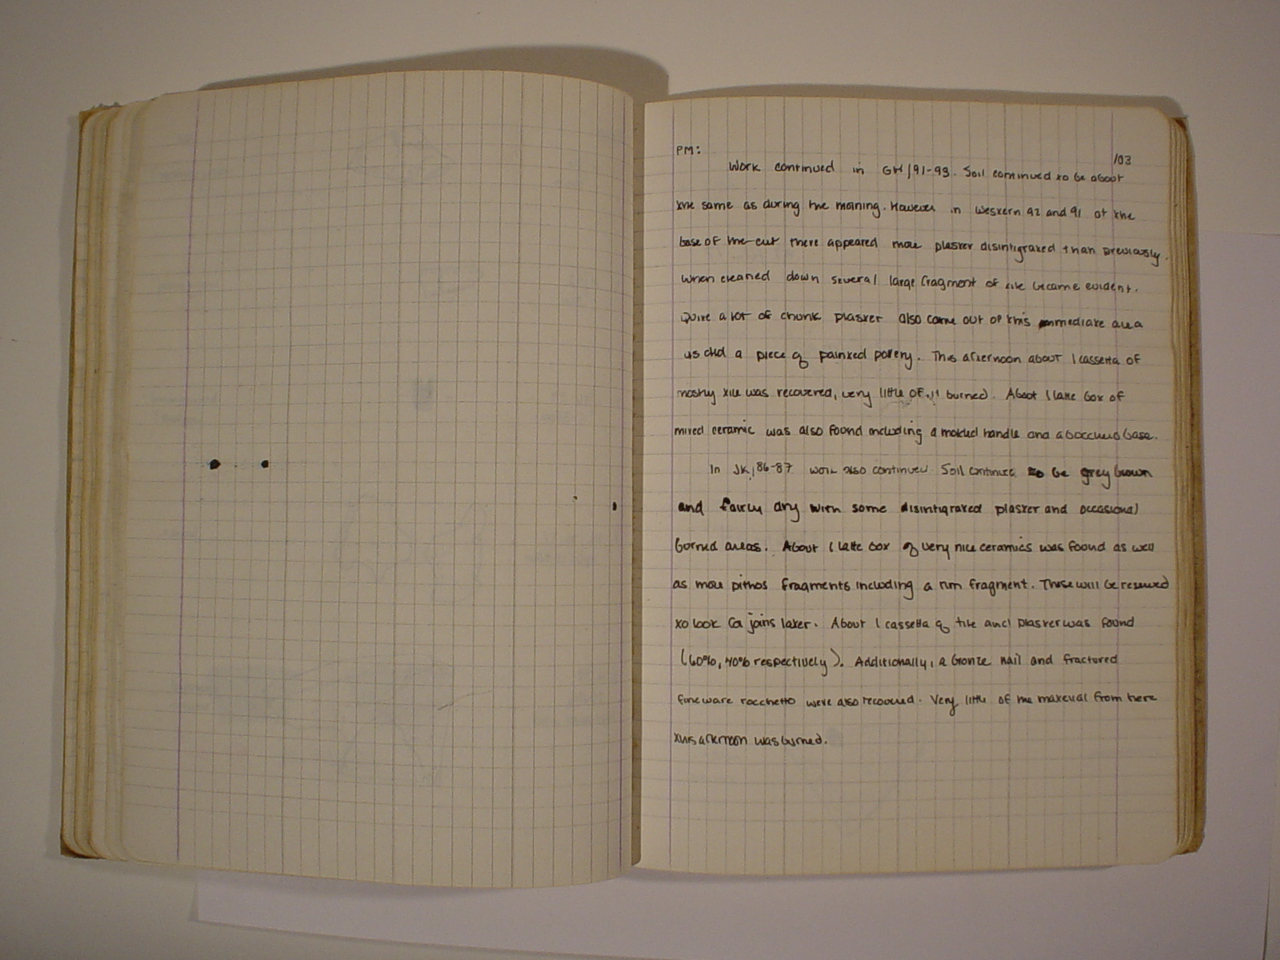 PM: 103
Work continued in GH/91-93. Soil continued to be about
the same as during the morning. However in western 92 and 91 at the
base of the cut there appeared more plaster disintigrated than previously.
When cleaned down several large fragment of tile became evident.
Quite a lot of chunk plaster also came out of this immediate area
as did a piece of painted pottery. This afternoon about 1 cassetta of
mostly tile was recovered, very little of it burned. About 1 latte box of
mixed ceramic was also found including a molded handle and a bucchero base.
In JK/86-87 work also continued Soil continues to be grey brown
and fairly dry with some disintigrated plaster and occasional
burned areas. About 1 latte box of very nice ceramics was found as well
as more pithos fragments including a rim fragment. These will be reserved
to look for joins later. About 1 cassetta of tile and plaster was found
(60%, 40% respectively). Additionally, a bronze nail and fractured
fineware rocchetto were also recovered. Very little of the material from here
this afternoon was burned.